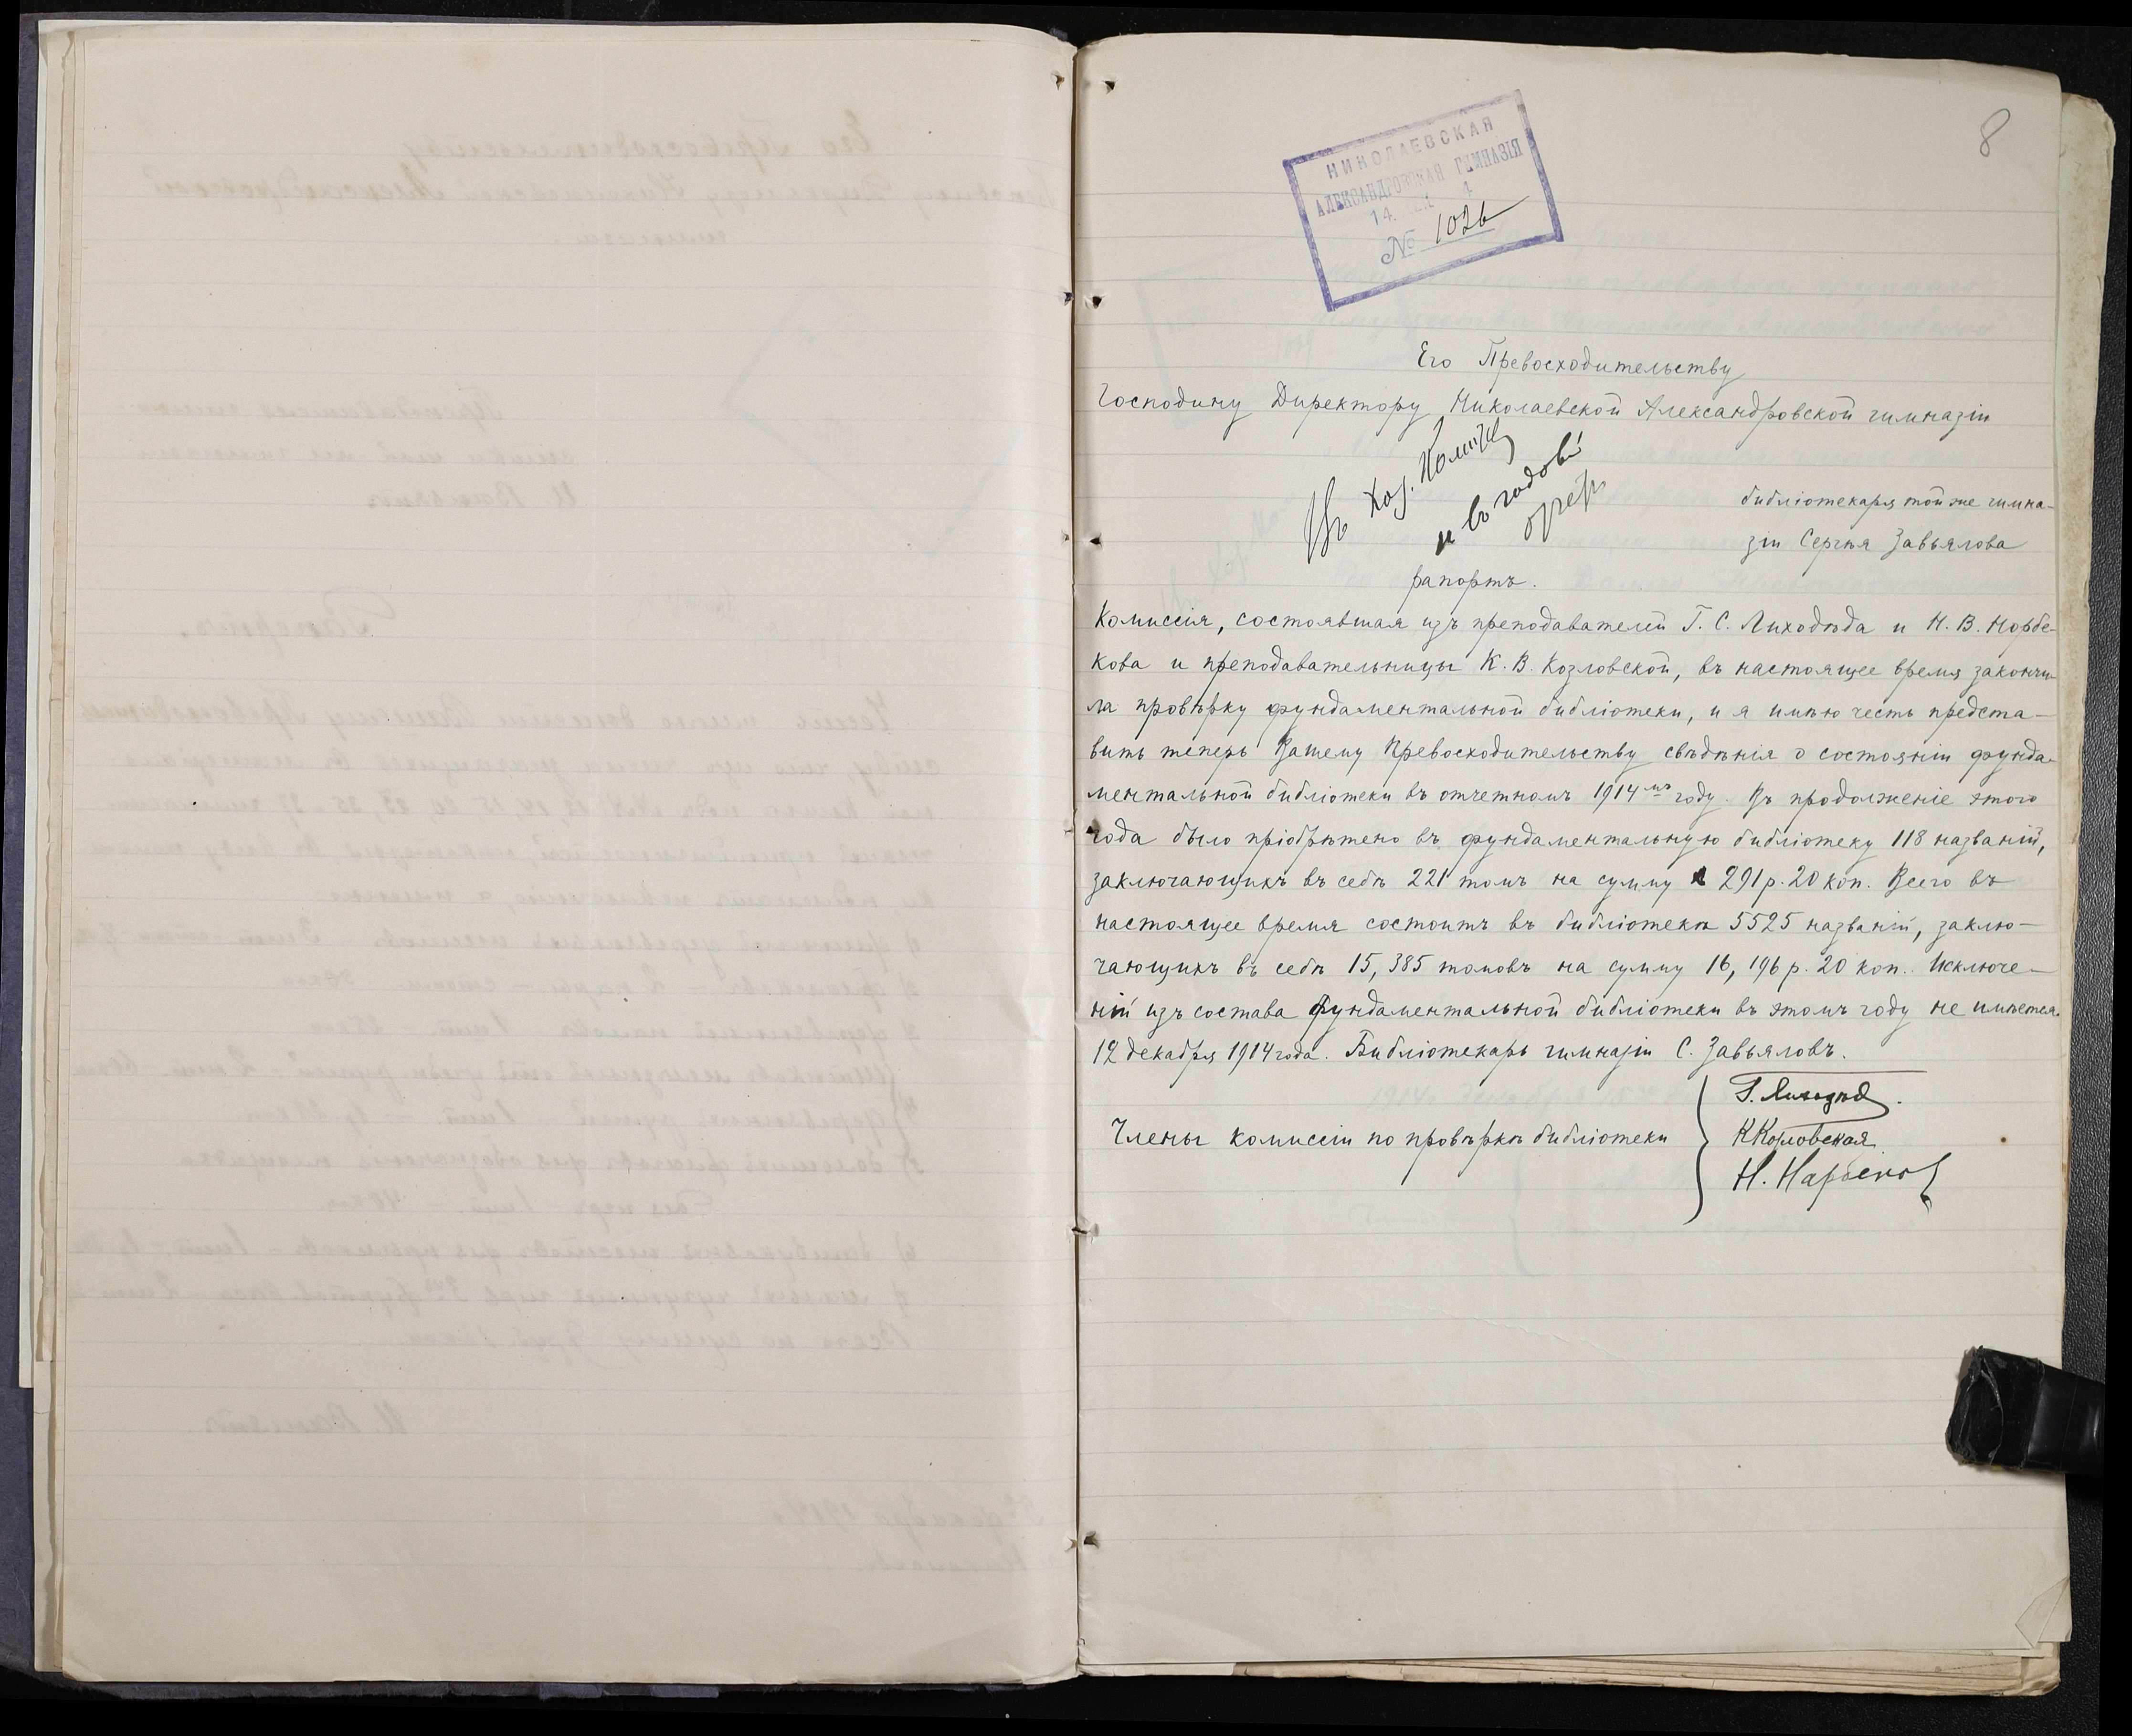 8
НИКОЛАЕВСКАЯ
АЛЕКСАНДРОВСКАЯ ГИМНАЗІЯ
№ 1026
Его Превосходительству
Господину Директору Николаевской Александровской гимназіи
Въ Хоз. Комит.
и въ годов.
отчетъ
библіотекаря той же гимна-
зіи Сергѣя Завьялова
рапортъ.
Комиссія, состоявшая изъ преподавателей Г. С. Лиходѣда и Н. В. Норбе-
кова и преподавательницы К. В. Козловской, въ настоящее время закончи-
ла провѣрку фундаментальной библіотеки, и я имѣю честь предста-
вить теперь Вашему Превосходительству свѣдѣнія о состояніи фунда-
ментальной библіотеки въ отчетномъ 1914мъ году. Въ продолженіе этого
года было пріобрѣтено въ фундаментальную библіотеку 118 названій,
заключающихъ въ себѣ 221 томъ на сумму 291 р. 20 коп. Всего въ
настоящее время состоитъ въ библіотекѣ 5525 названій, заклю-
чающихъ въ себѣ 15,385 томовъ на сумму 16,196 р. 20 коп. Исключе-
ній изъ состава фундаментальной библіотеки въ этомъ году не имѣется.
12 декабря 1914 года. Библіотекарь гимназіи С. Завьяловъ.
Г. Лиходѣд.
Члены комиссіи по провѣркѣ библіотеки
К Козловская
Н.